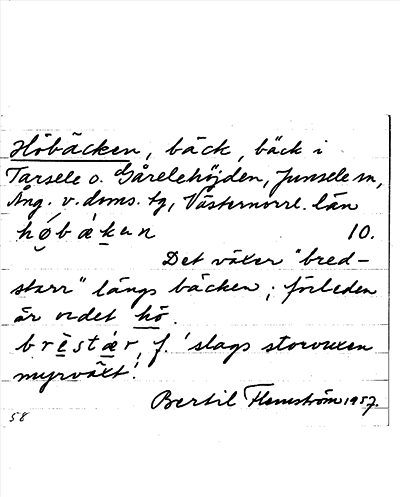 Höbäcken, bäck, bäck i
Tarsele o. Gårelehöjden, Junsele sn,
Ång. v. doms. tg, Västernorrl. län
hǿbäken 10.
Det växer "bred-
starr" längs bäcken; förleden
är ordet hö.
brèstær, f. 'slags storvuxen
myrväxt'.
Bertil Flemström 1957.
58